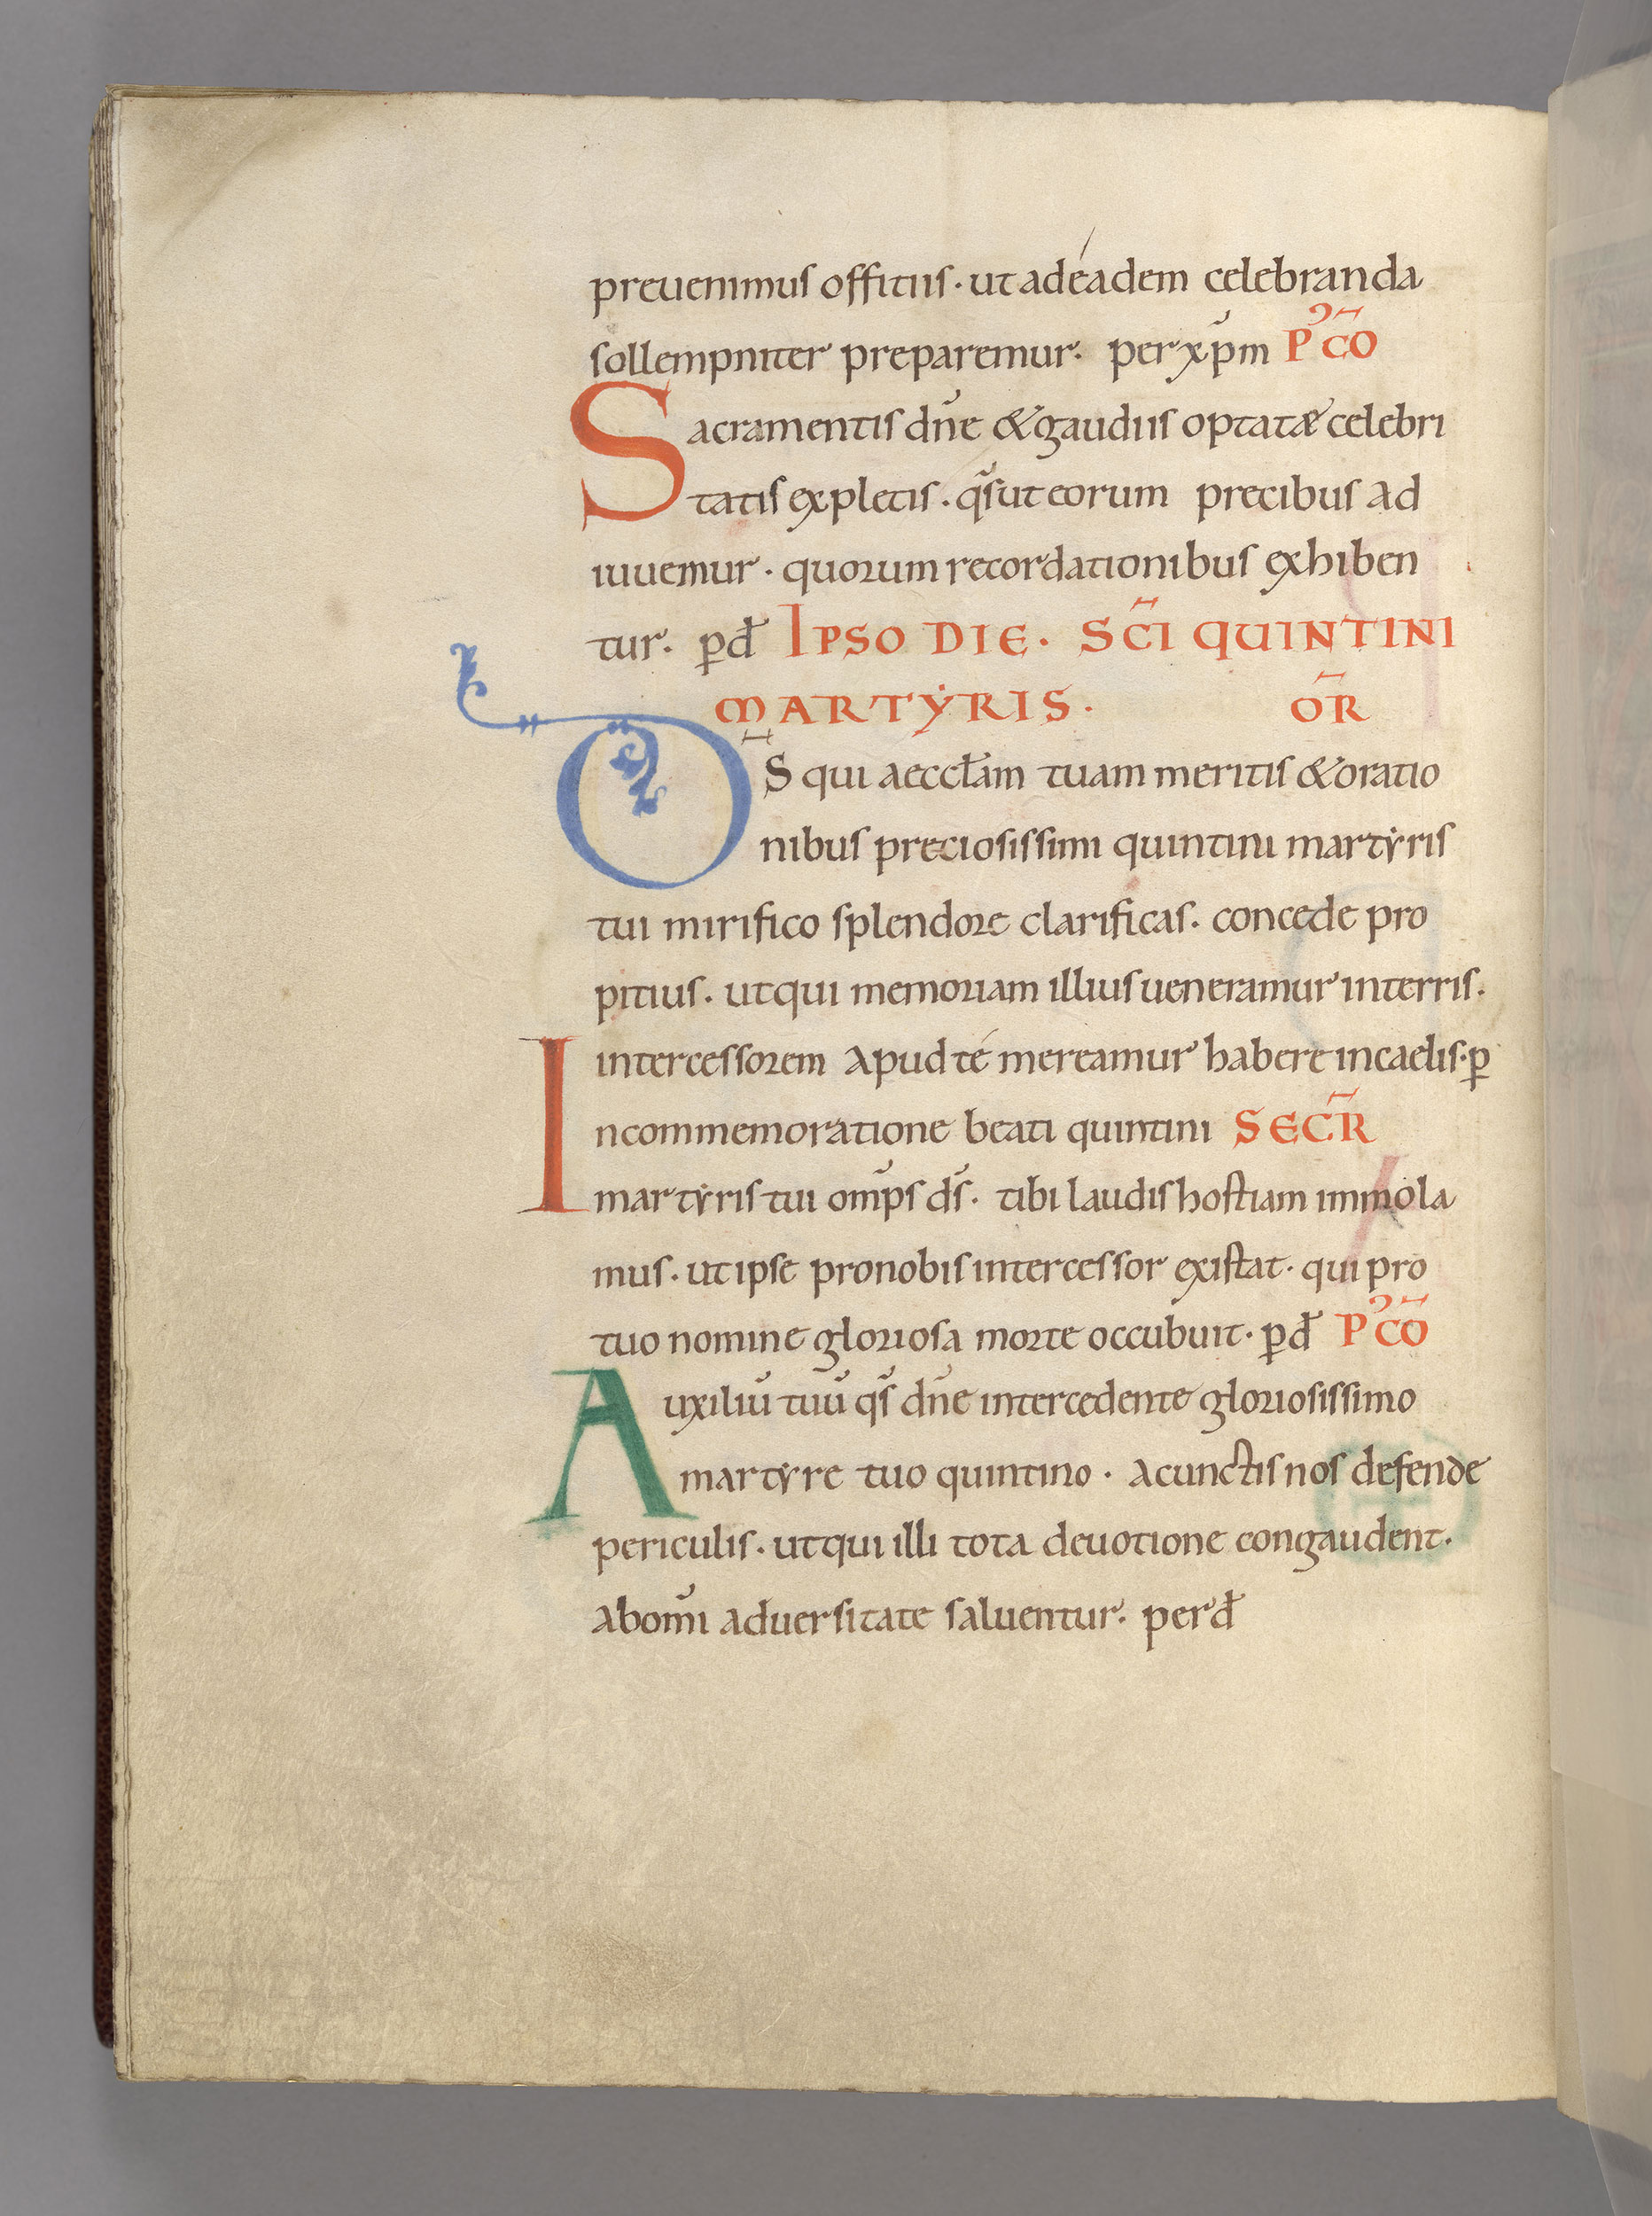 preuenimus offitiis · ut ad eadem celebranda
sollempniter preparemur. per xp̄m P᾽CŌ
Sacramentis dn̄e & gaudiis optatæ celebri
tatis expletis · qs̄ ut eorum precibus ad
iuuemur · quorum recordationibus exhiben
tur. ꝑ dꝉ IPSO DIE · SC̄I QUINTINI
MARTẎRIS · OR̄
D̄S qui aeccꝉam tuam meritis & oratio
nibus preciosissimi quintini martẏris
tui mirifico splendore clarificas · concede pro
pitius · ut qui memoriam illius ueneramur in terris ·
intercessorem apud té mereamur habere in caelis · ꝑ
In commemoratione beati quintini SECR̄
martẏris tui om̄ps ds̄ · tibi laudis hostiam immola
mus · ut ipse pro nobis intercessor existat · qui pro
tuo nomine gloriosa morte occubuit · ꝑ dꝉ P᾽CŌ
Auxiliū tuū qs̄ dn̄e intercedente gloriosissimo
martẏre tuo quintino · a cunctis nos defende
periculis · ut qui illi tota deuotione congaudent ·
ab om̄i aduersitate saluentur · per dꝉ